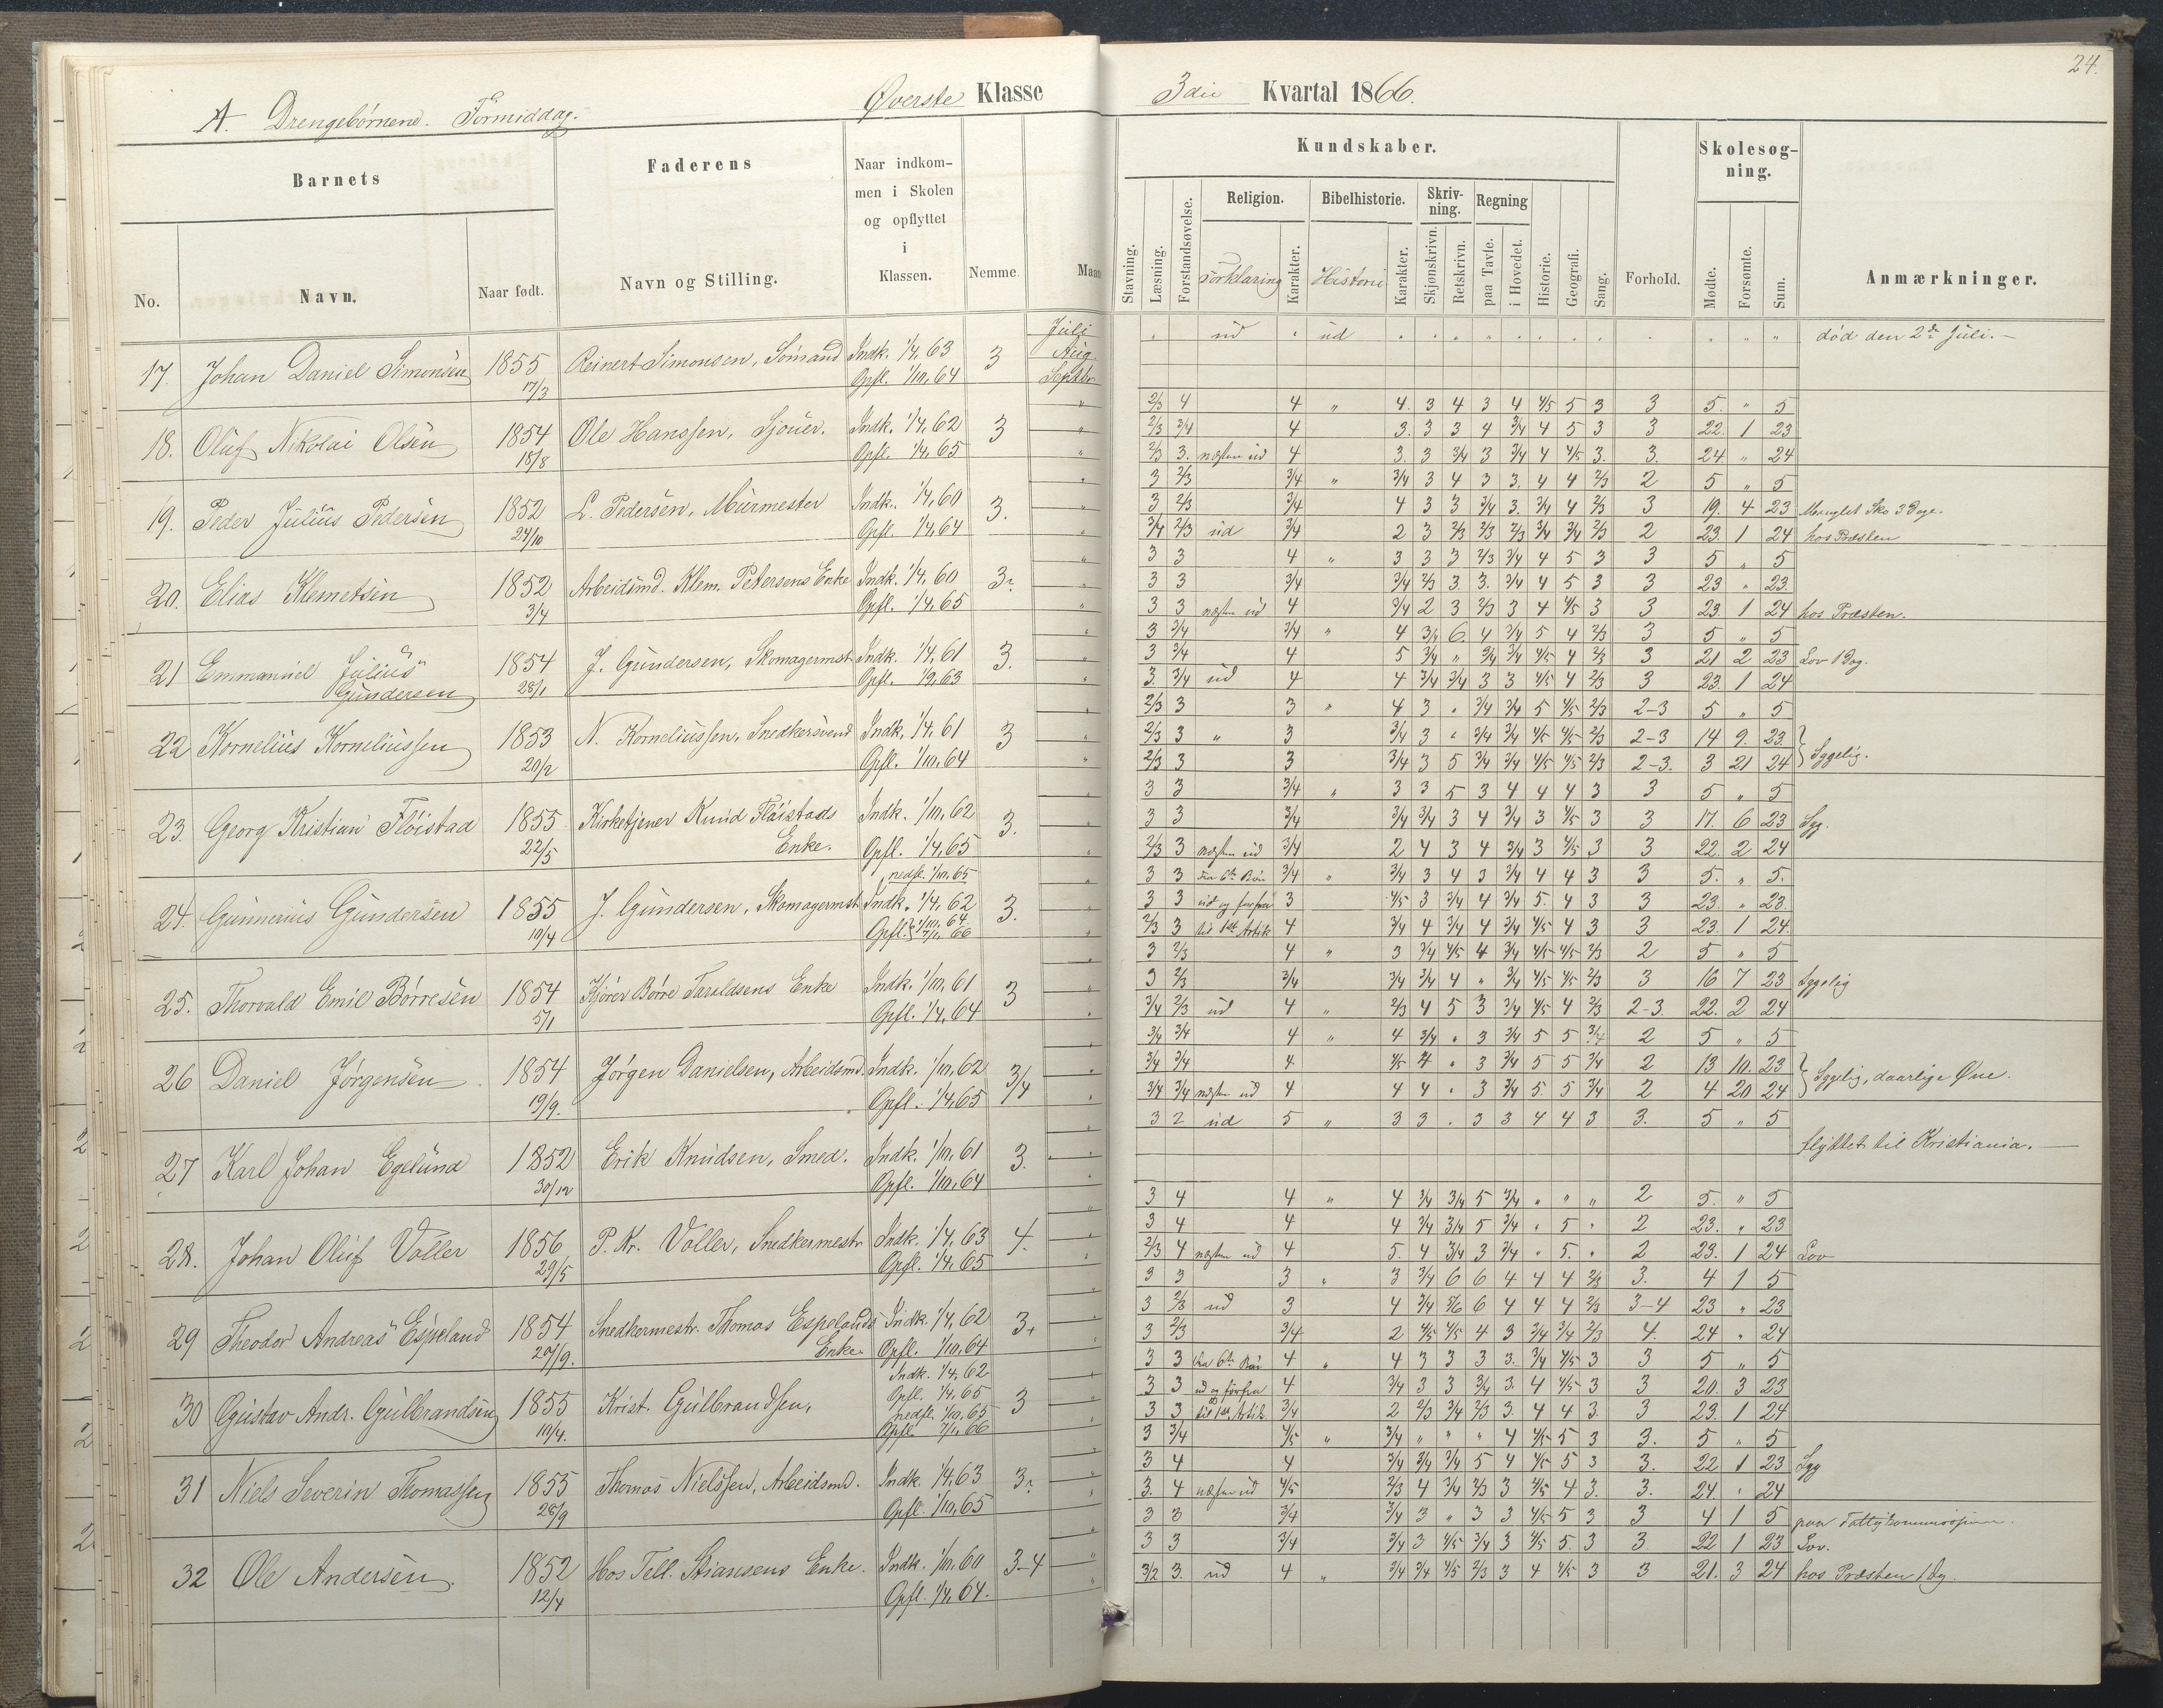 24.
A. Drengebørnene. Formiddag.
Øverste Klasse
3die Kvartal 1866.
Barnets
Faderens
Naar indkom-
men i Skolen
og opflyttet
i
Klassen.
Nemme.
No.
Navn.
Naar født.
Navn og Stilling.
Kundskaber.
Skolesøg-
ning.
Religion.
Bibelhistorie.
Skriv-
ning.
Regning
Stavning.
Læsning.
Forstandsøvelse.
Forklaring
Karakter.
Historie
Karakter.
Skjønskrivn.
Retskrivn.
paa Tavle.
i Hovedet.
Historie.
Geografi.
Sang.
Forhold.
Mødte.
Forsømte.
Sum.
Anmærkninger.
17. Johan Daniel Simonsen 1855 17/3 Reinert Simonsen, Sömand Indk. 1/4, 63 Opfl. 1/10, 64 3 Juli Aug. Septbr
18. Oluf Nikolai Olsen 1854 18/8 Ole Hanssen, Sjouer. Indk. 1/4, 62 Opfl. 1/4, 65 3
19. Peder Julius Pedersen 1852 24/10 L. Pedersen, Murmester Indk. 1/4, 60 Opfl. 1/4, 64 3.
20. Elias Klemetsen 1852 3/4 Arbeidsmd. Klem. Petersens Enke Indk. 1/4, 60 Opfl. 1/4, 65
21 Emmanuel Julius Gundersen 1854 28/1 J. Gundersen, Skomagermst. Indk. 1/4, 61 Opfl. 1/9, 63 3.
22 Kornelius Korneliussen 1853 20/2 N. Korneliussen, Snedkersvend Indk. 1/4, 61 Opfl. 1/10, 64 3
23. Georg Kristian Flöistad 1855 22/5 Kirketjener Knud Flöistads Enke. Indk. 1/10, 62 Opfl. 1/4, 65 nedfl. 1/10, 65 3.
24. Gunnerius Gundersen 1855 10/4 J. Gundersen, Skomagermst. Indk. 1/4, 62 Opfl. 1/10, 64 7/1, 66 3.
25. Thorvald Emil Börresen 1854 5/1 Kjörer Börre Taraldsens Enke Indk. 1/10, 61 Opfl. 1/4, 64 3
26 Daniel Jørgensen 1854 19/9. Jørgen Danielsen, Arbeidsmd. Indk. 1/10, 62 Opfl. 1/4, 65 3/4
27 Karl Johan Egelund 1852 30/12 Erik Knudsen, Smed. Indk. 1/10, 61 Opfl. 1/10, 64 3.
28. Johan Oluf Voller 1856 29/5 P. Kr. Voller, Snedkermestr. Indk. 1/4, 63 Opfl. 1/4, 65 4.
29 Theodor Andreas Espeland 1854 20/9. Snedkermestr. Thomas Espelands Enke Indk. 1/4, 62 Opfl. 1/10, 64
30 Gustav Andr. Gulbrandsen 1855 10/4. Krist. Gulbrandsen, Indk. 1/4, 62 Opfl. 1/4, 65 nedfl. 1/10, 65 Opfl. 7/1, 66 3
31 Niels Severin Thomassen 1853 28/9 Thomas Nielssen, Arbeidsmd. Indk. 1/4, 63 Opfl. 1/10, 65
32 Ole Andersen. 1852 12/4 Hos Tell. Stiansens Enke. Indk. 1/10, 60 Opfl. 1/4, 64. 3-4
ud ud død den 2den Juli.
2/3 4 4 " 4. 3 4 3 4 4/5 5 3 3 5. " 5
2/3 3/4 4 3. 3 3 4 3/4 4 5 3 3 22. 1 23
2/3 3. næsten ud 4 3. 3 3/4 3 3/4 4 4/5 3. 3. 24. " 24
3 2/3 3/4 " 3/4 3 4 3 3. 4 4 2/3 2 5 " 5
3 2/3 3/4 4 3 3 3/4 3. 3/4 4 2/3 3 19. 4 23 Manglet Sko 3 Dage.
3/4 2/3 ud 3/4 2 3 2/3 2/3 2/3 3/4 3/4 2/3 2 23. 1 24 hos Præsten
3 3 4 " 3 3 3 2/3 3/4 4 5 3 3 5 " 5
3 3 3/4 3/4 2/3 3 3. 3/4 4 5 3 3 23 " 23.
3 3 næsten ud 4 3/4 2 3 2/3 3 4 4/5 3 3 23. 1 24 hos Præsten.
3 3/4 3/4 " 4 3/4 6. 4 3/4 5 4 2/3 3 5 " 5
3 3/4 4 5 3/4 " 3/4 3/4 4/5 4 2/3 3 21 2 23 Lov 1 Dag.
3. 3/4 ud 4 4 3/4 3/4 3 3 4/5 4 2/3 3 23. 1 24
2/3 3 3 " 4 3 " 3/4 3/4 5 4/5 2/3 2-3 5 " 5
2/3 3 " 3 3/4 3 " 3/4 3/4 4/5 4/5 2/3 2-3 14 9. 23.
2/3 3 3 3/4 3 5 3/4 3/4 4/5 4/5 2/3 2-3. 3 21 24 Sygelig.
3 3 3/4 " 3 3 5 3 4 4 4 3 3 5 " 5
3 3 3/4 3/4 3/4 3 4 3/4 3 4/5 3 3 17. 6 23 Syg.
2/3 3 næsten ud 3/4 2 4 3 4 3/4 3 4/5 3 3 22. 2 24
3 3 fra 6te Bön 3/4 " 3/4 3 4 3 3/4 4 4 3 3 5. " 5.
3 3 ud og forfra 3 4/5 3 3/4 4 3/4 5. 4 3 3 23. " 23.
2/3 3 til 1ste Artik 4 3/4 4 3/4 4 3/4 4/5 4 3 3 23. 1 24.
3 2/3 4 " 3 3/4 4/5 4 3/4 4/5 4/5 2/3 2 5 " 5
3 2/3 3/4 3/4 3/4 4 " 3/4 4/5 4/5 2/3 3 16 7 23 Sygelig
3/4 2/3 ud 4 " 2/3 4 5 3 3/4 4/5 4 2/3 2-3. 22. 2 24
3/4 3/4 4 " 4 3/4 " 3 3/4 5 5 3/4 2 5 " 5
3/4 3/4 4 4/5 4 " 3 3/4 5 5 3/4 2 13 10. 23
3/4 3/4 næsten ud 4 4 4 " 3 3/4 5. 5 3/4 2 4 20 24 Sygelig, daarlige Øine.
3 2 ud 5 " 3 3 " 3 3 4 4 3 3. 5 " 5
flyttet til Kristiania.
3 4 4 " 4 3/4 3/4 5 3/4 " " " 2 5. " 5
3 4 4 4 3/4 3/4 5 3/4 " 5 " 2 23. " 23
2/3 4 næsten ud 4 5. 4 3/4 3 3/4 " 5. " 2 23. 1 24 Lov
3 3 3 " 3 3/4 6 6 4 4 4 2/3 3. 4 1 5
3 2/3 ud 3 4 3/4 5/6 6 4 4 4 2/3 3-4 23 " 23
3 2/3 3/4 2 4/5 4/5 4 3 3/4 3/4 2/3 4. 24 " 24
3 3 fra 6te Bön 4 " 4 3 3 3 3. 3/4 4/5 3 3 5 " 5
3 3 ud og forfra 4 3/4 3 3 3/4 3. 4 4/5 3 3 20. 3 23
3 3 til 1ste Artik. 3/4 2 2/3 3/4 2/3 3. 4 4 3. 3 23. 1 24
3 3/4 4/5 " 3/4 " " " 4 4/5 5 3 3. 5 " 5
3 4 4 3/4 3/4 3/4 5 4 4/5 5 3 3. 22 1 23 Syg
3. 4 næsten ud 4/5 2/3 4 3/4 2/3 3 4/5 4 3. 3. 24 " 24
3 3 3/4 3/4 3 " 3 3 4/5 5 3 3 4 1 5 paa Fattigkommissjonen.
3 3 3/4 3/4 3 4/5 3/4 3 4/5 5. 3 3 22 1 23 Lov.
3/2 3. ud 4 " 3/4 3/4 4/5 2/3 3 4 4/5 3 3 21. 3 24 hos Præsten 1 Dg.